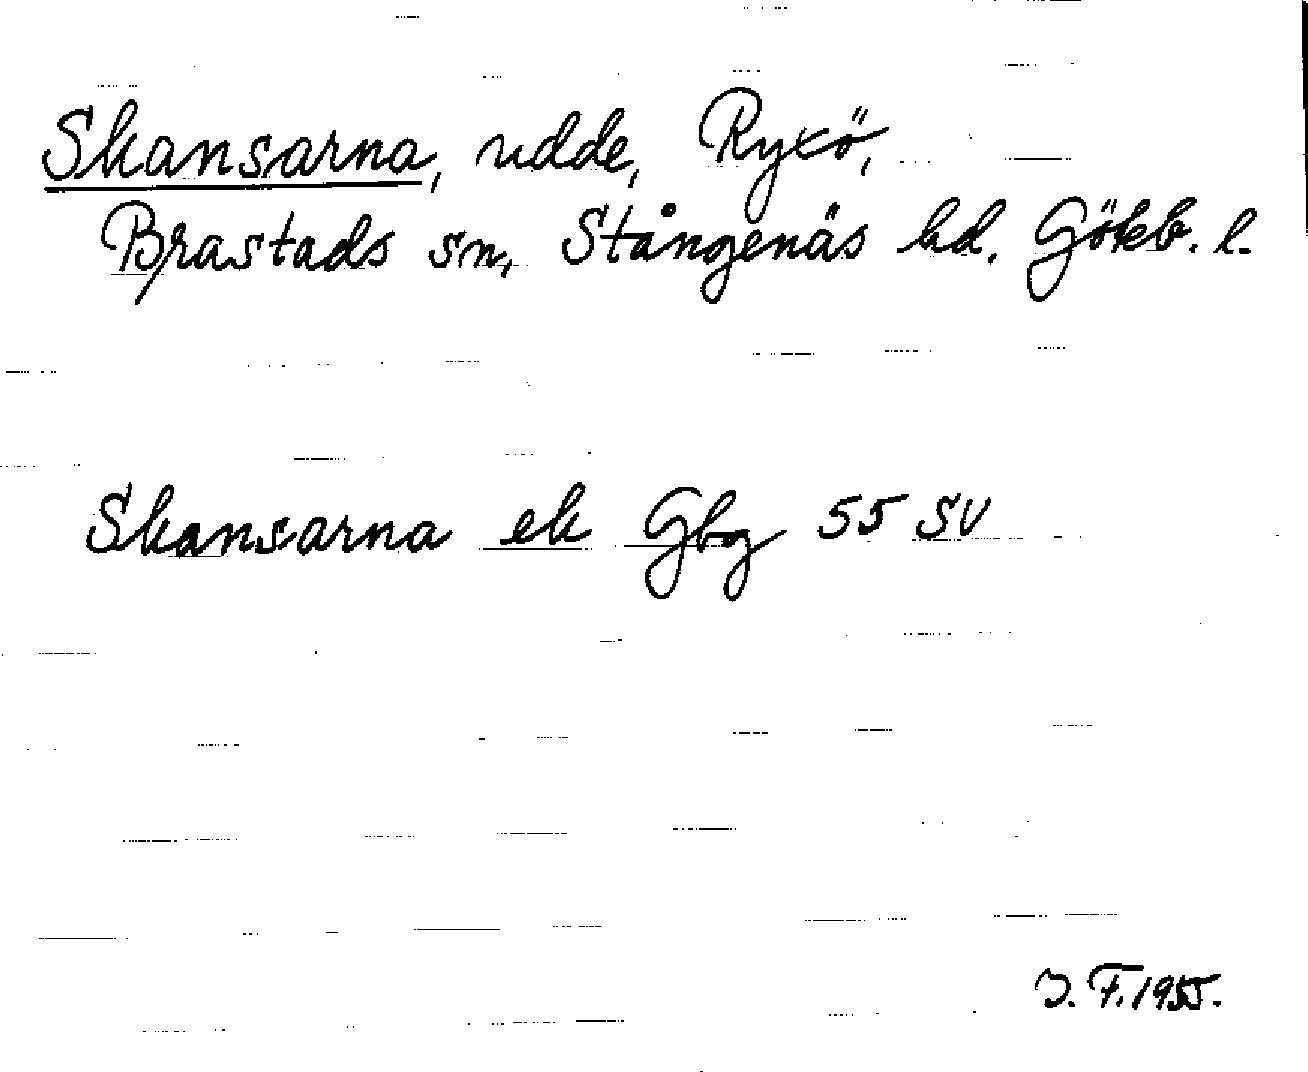 Skansarna, udde, Ryxö,
Brastads sn, Stångenäs hd. Göteb. l.
Skansarna ek Gbg 55 SV
J. F. 1955.